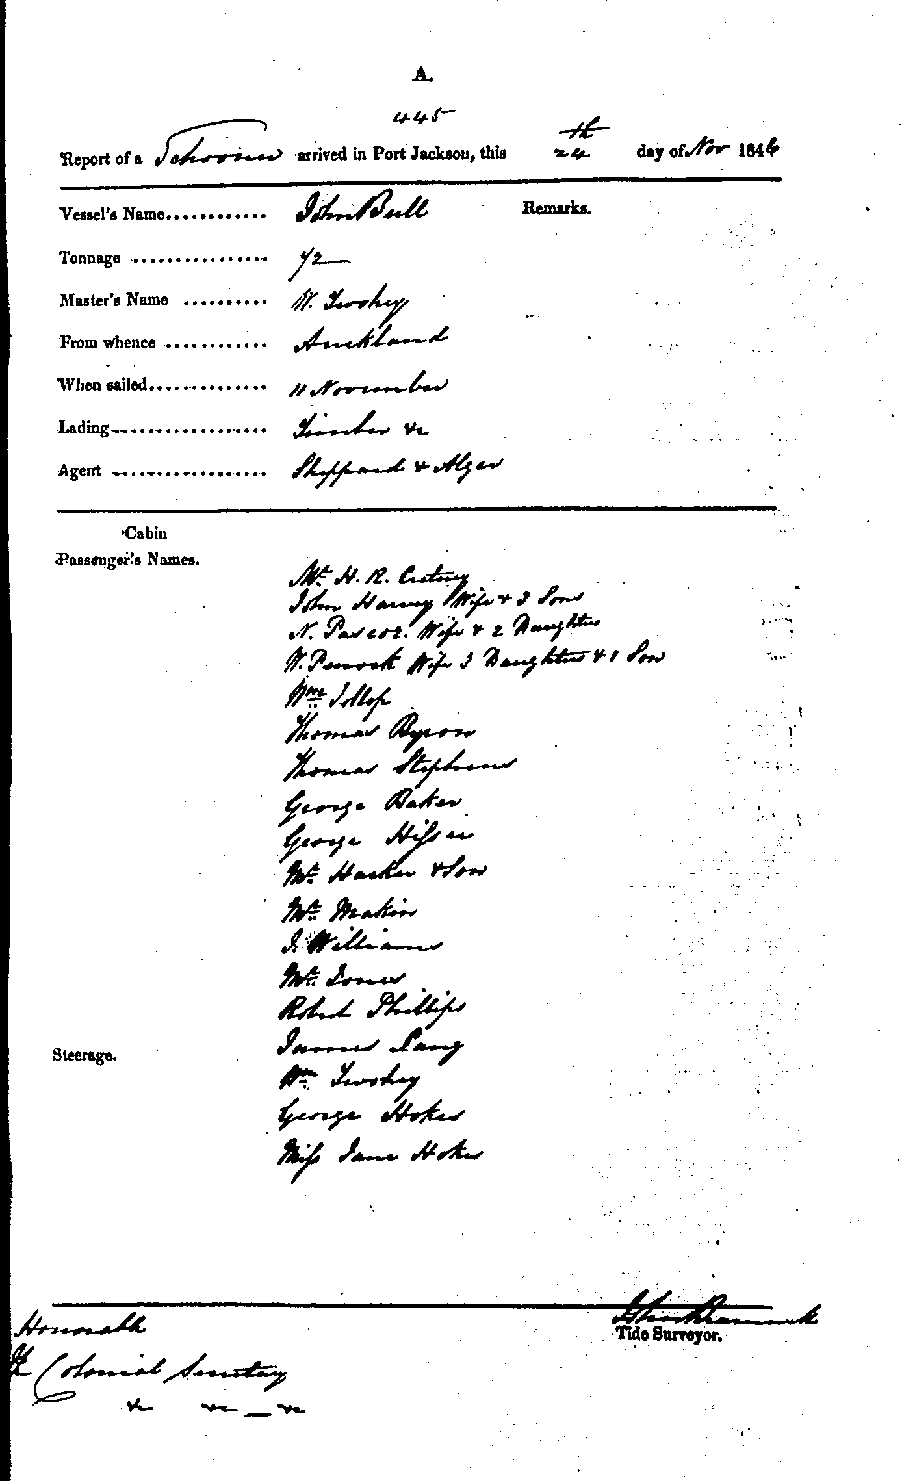 A.
445
Report of a Schooner arrived in Port Jackson, this 24th day of Nov 1846
Vessel's Name............ John Bull
Remarks.
Tonnage ................ 72
Master's Name .......... W. Twohey
From whence ............ Auckland
When sailed.............. 11 November
Lading.................. Timber &c
Agent .................. Sheppard & Alger
Cabin
Passenger's Names.
Mr. H. R.
John Harvey Wife & 3 Sons
N. Pascoe. Wife & 2 Daughters
W. Peacock Wife 3 Daughters & 1 Son
Wm Jollop
Thomas Byron
Thomas Stephens
George Baker
George
Mr. Harker & Son
Mr. Makin
J. Williams
Mr. Jones
Robert Phillips
James Lang
Steerage.
Wm Twohey
George Hoker
Miss Jane Hoker
Tide Surveyor.
Honorable
The Colonial Secretary
&c &c — &c